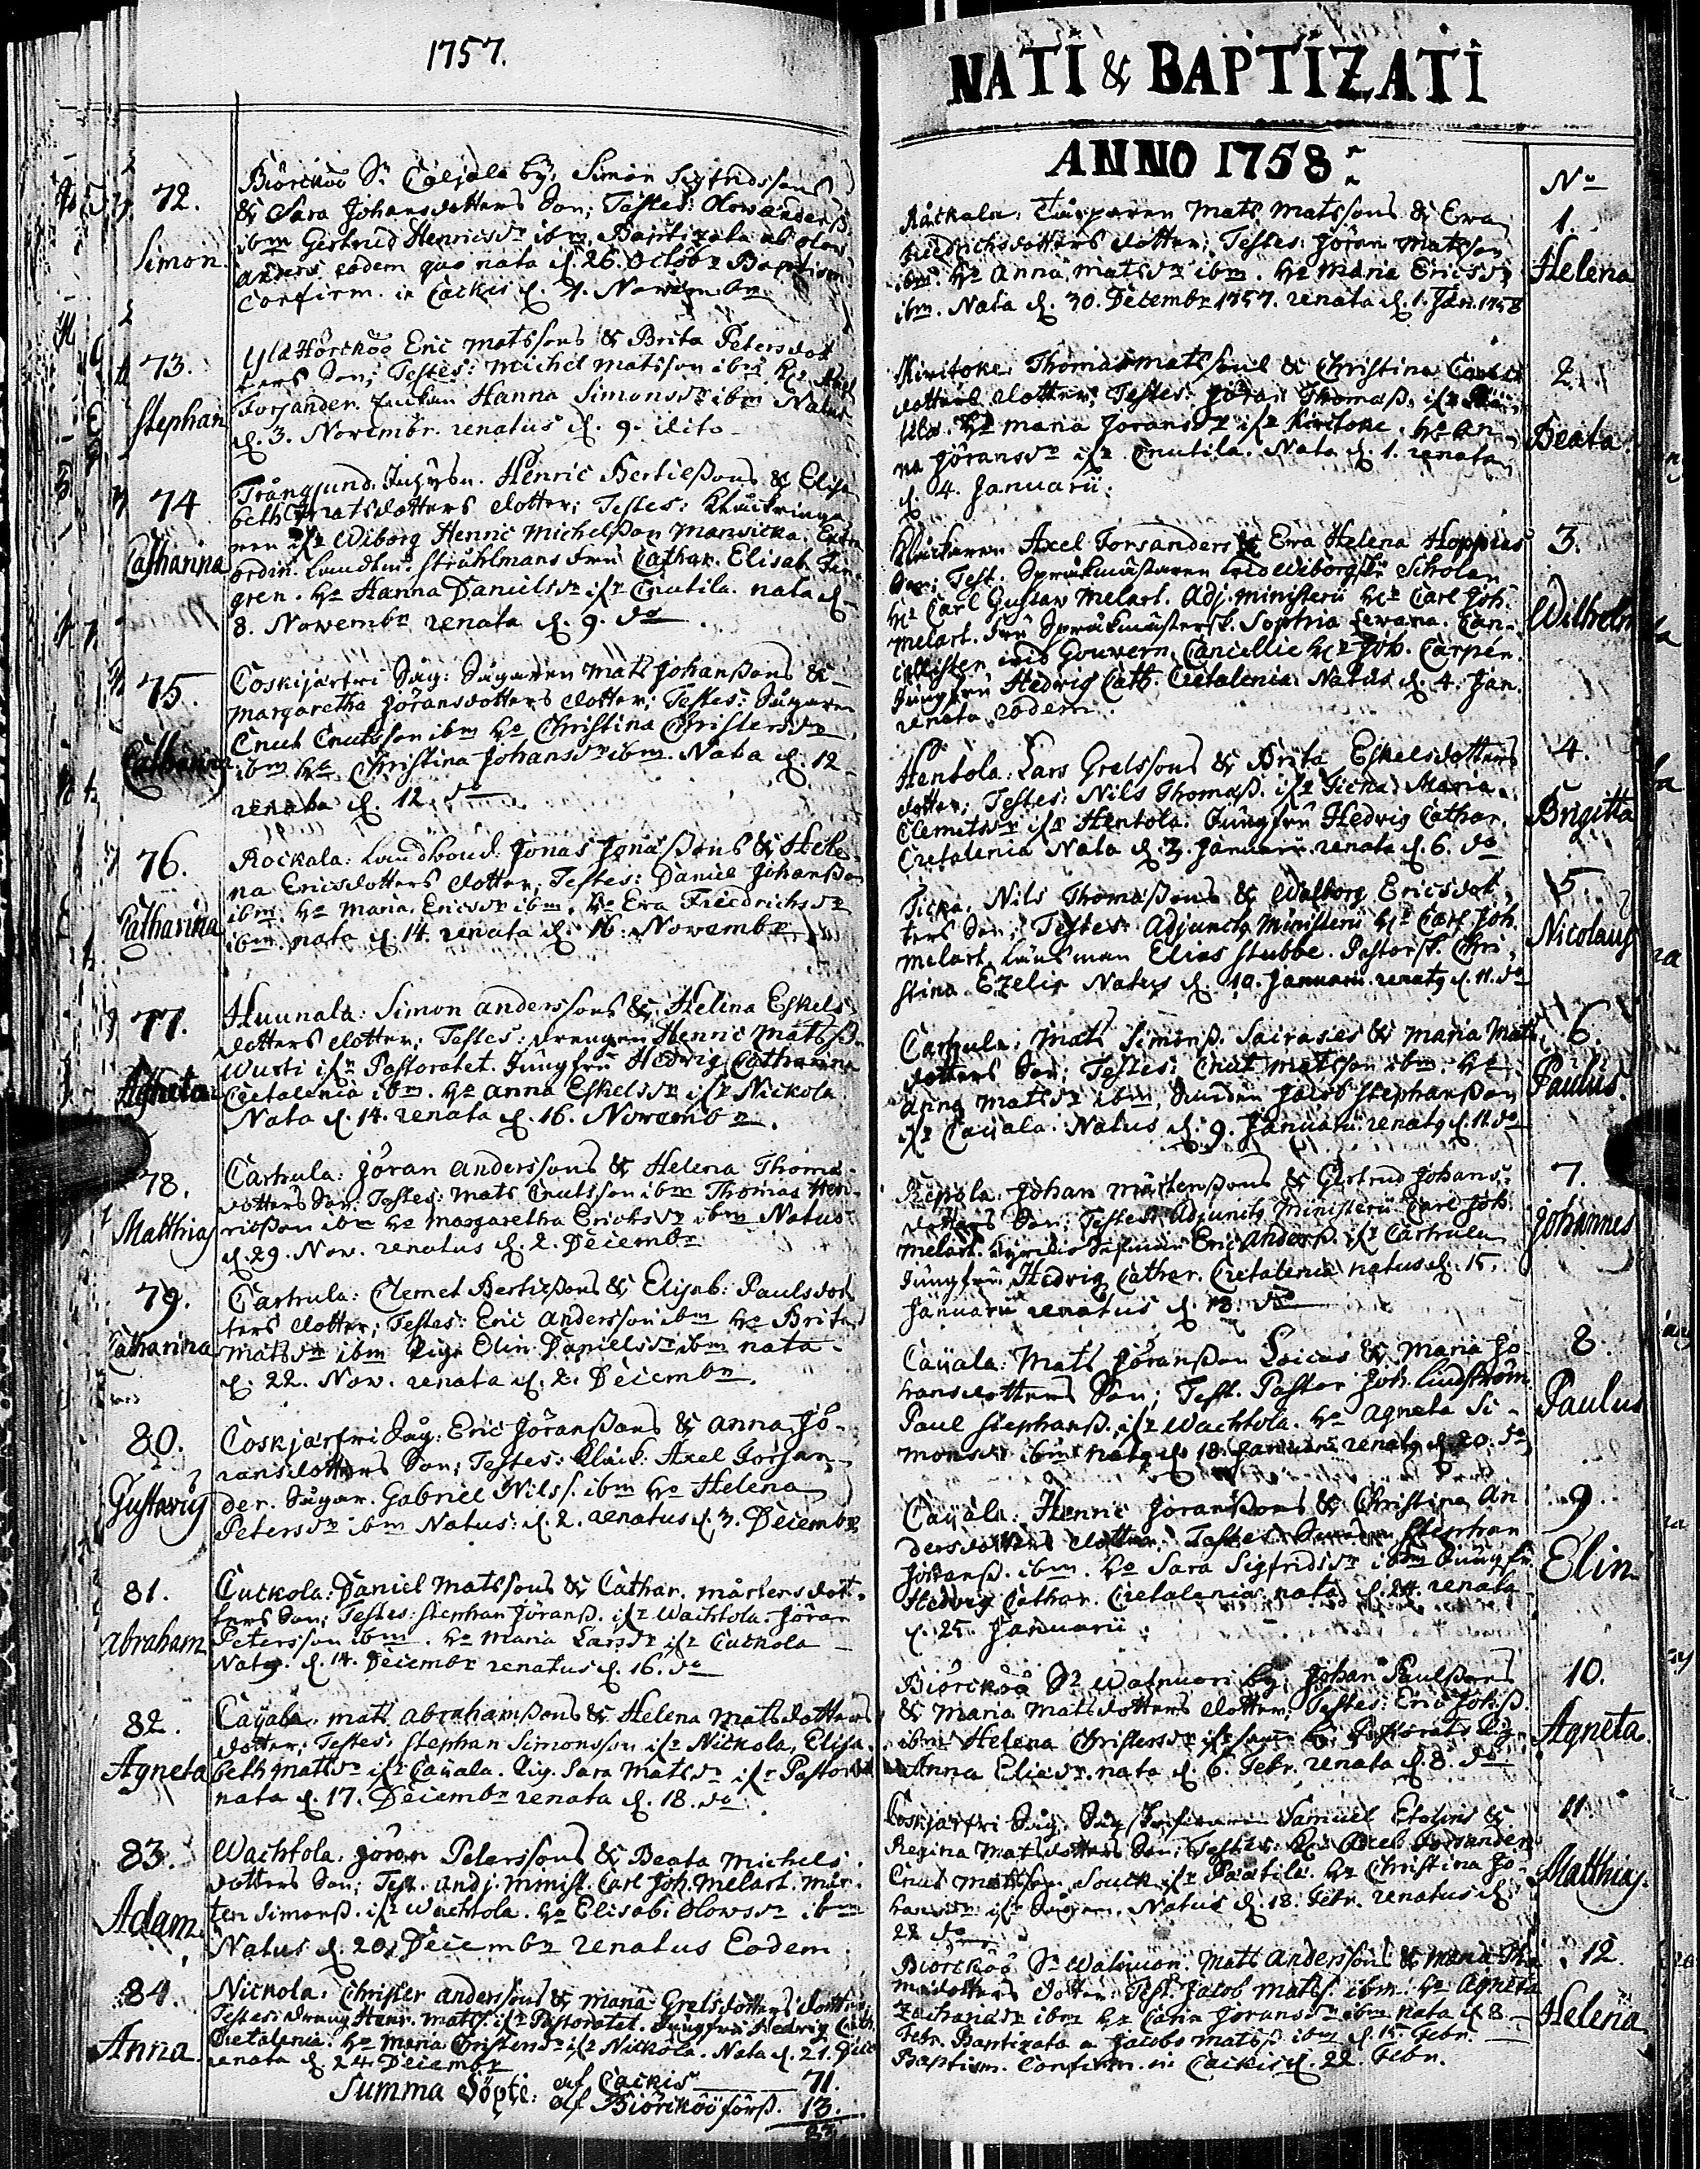 1757.
72.
Simon
Biörcköö Sn Coljola by, Simon Sigfridssons
& Sara Johansdotters Son; Testes: Olow anderß
ibm Gertrud Henricsdr ibm, Baptizata ab olow
anders eodem quo nata d. 26. Octobr Baptism
Confirm. in Cackis d. 4. Novembr
73.
Stephan
Eric Matssons & Brita Petersdot
ters Son; Testes: Michel Matsson ibm. Kl: Axel
Forsander. Hanna Simonsdr ibm Natus
d. 3. Novembr. renatus d. 9. dito
74
Catharina
Trångsund. Henric Bertilßons & Elisa
beth Matsdotters dotter; Testes:
ifr Wiborg Henric Michelßon Mansicka. Extra
ordin. Landtm. Stråhlmans fru Cathar. Elisab.
gren. Ho Hanna Danielsdr ifr Cnutila. nata d.
8. Novembr renata d. 9. do
75.
Catharina
Coskijärfvi Såg: Sågaren Mats Johanßons &
Margaretha Jöransdotters dotter; Testes: Sågaren
Cnut Cnutsson ibm Ho Christina Christersdr
ibm Ho Christina Johansdr ibm. Nata d. 12
renata d. 12 do
76.
Catharina
Rockala: Landboud Jonas Jonaßons & Hele
na Ericsdotters dotter, Testes: Daniel Johanßon
ibm. Ho Maria Ericsdr ibm. Ho Ewa Friedrichsdr
ibm nata d. 14. renata d. 16. Novembr
77.
Agneta
Huunala: Simon anderssons & Helena Eskels
dotters dotter; Testes: drengen Henric Matsß.
Wusti ifr Pastoratet. Jungfru Hedvig Catharina
Cretalenia ibm. Ho Anna Eskelsdr ifr Nickola
Nata d. 14. renata d. 16. Novembr.
78.
Matthias
Cartula: Jöran anderssons & Helena Thoma
dotters Son. Testes: Mats Cnutsson ibm Thomas Hen
ricßon ibm Ho Margaretha Erichsdr ibm Natus
d. 29. Nov. renatus d. 2. Decembr
79.
Catharina
Cartula: Clemet Bertilßons & Elisab: Paulsdot
ters dotter; Testes: Eric Andersson ibm Ho Brita
Matsdr ibm Pig. Elin Danielsdr ibm nata
d. 22. Nov. renata d. 2. Decembr.
80.
Gustavus
Coskijärfvi Såg: Eric Jöranßons & Anna Jö
ransdotters Son; Testes: Klåck. Axel Forsan
der. Sågar. Gabriel Nilss. ibm Ho Helena
Petersdr ibm Natus: d. 2. renatus d. 3. Decembr
81.
Abraham
Cuckola: Daniel Matssons & Cathar. Mårtensdot
ters Son; Testes: Stephan Jöranß. ifr Wachtola. Jöran
Petersson ibm. Ho Maria Larsdr ifr Cuckola
Natg. d. 14. Decembr renatus d. 16. do
82.
Agneta
Caÿala. Mats Abrahamßons & Helena Matsdotters
dotter; Testes: Stephan Simonsson ifr Nickola, Elisa
beth Matsdr ifr Caÿala. Pig. Sara Matsdr ifr Pastorat
nata d. 17. Decembr renata d. 18. do
83.
Adam
Wachtola: Jöran Peterssons & Beata Michels
dotters Son; Test. Adj. minist. Carl Joh. Melart. Mår
ten Simonß. ifr Wachtola. Ho Elisab: Olowsdr ibm
Natus d. 20. Decembr renatus Eodem
84.
Anna
Nickola: Christer anderssons & Maria Grelsdotters dotter;
Testes: dreng Henr. Matss. ifr Pastoratet. Jungfru Hedvig Cath.
Cretalenia. Ho Maria Christersdr ifr Nickola. Nata d. 21. Dec
renata d. 24 Decembr
Summa Döpte: af Cackis 71.
af Biörcköö förß. 13.
NATI & BAPTIZATI
ANNO 1758:
No
1.
Helena
Råckala: Mats Matssons & Ewa
Friedrichsdotters dotter; Testes: Jöran Matsson
ibm. Ho Anna Matsdr ibm. Ho Maria Ericsdr
ibm. Nata d. 30. Decembr 1757. renata d. 1. Jan. 1758
2.
Beata
Kiritoke: Thomas Matssons & Christina
dotters dotter; Testes: Jöran Thomaß.
Ho Maria Joransdr ifr Kiritoke. Ho An
na Jöransdr ifr Cnutila. Nata d. 1. renata
d. 4. Januarii.
3.
Wilhelm
Klåckaren Axel Forsanders & Ewa Helena Hoppius
Son; Test. Språkmästaren wid Wiborgske Scholan
Hr Carl Gustav Melart. Adj. ministerii Hr Carl Joh.
Melart. Fru Språkmästersk. Sophia Can
cellisten wid Gouvern. Cancellie Hr Joh. Carpén.
Jungfru Hedvig Cath. Cretalenia. Natus d. 4. Jan.
renata eodem.
4.
Brigitta
Hentola: Lars Grelssons & Brita Eskelsdotters
dotter; Testes: Nils Thomaß. ifr Ticka. Maria
Clemetsdr ifr Hentola. Jungfru Hedvig Cathar.
Cretalenia Nata d. 3. Januarii renata d. 6. do
5.
Nicolaus
Ticka. Nils Thomaßons & Walborg Ericsdot
ters Son; Testes: Adjunctg Ministerii Hr Carl Joh.
Melart. Länsman Elias Stubbe. Pastorsk. Chri
stina Ezelia Natus d. 10. Januarii renatg d. 11. do
6.
Paulus
Cartula: Mats Simonß. Sairases & Maria Mats
dotters Son; Testes: Cnut Matsson ibm. Ho
Anna Matsdr ibm, Jacob Stephanßon
ifr Caÿala. Natus d. 9. Januarii renatg d. 11. do
7.
Johannes
Repola: Johan Mårtenßons & Gertrud Johans
dotters Son; Testes: Adjunctg Ministerii Carl Joh.
Melart. Eric Anderß. ifr Cartula
Jungfru Hedvig Cathar. Cretalenia natus d. 15.
Januarii renatus d. 18. do
8.
Paulus
Caÿala: Mats Jöranßon Loicas & Maria Jo
hansdotters Son; Test. Pastor Joh. Lindström.
Paul Stephanß. ifr Wachtola. Ho Agneta Si
monsdr ibm natg d. 18. Januarii renatg d. 20. do
9.
Elin
Caÿala: Henric Joranßons & Christina An
dersdotters dotter. Testes: Stephan
Johanß. ibm. Ho Sara Sigfridsdr ibm Jungfr.
Hedvig Cathar. Cretalenia nata d. 24. renata
d. 25. Januarii.
10.
Agneta
Biörcköö Sn Watnuori by. Johan Paulßons
& Maria Matsdotters dotter; Testes: Eric Johß.
ibm Helena Christersdr Pastorats Pig.
Anna Eliasdr. nata d. 6. Febr. renata d. 8. do
11
Matthias.
Coskjärfvi Såg. Samuel Etolins &
Regina Matsdotters Son; Testes: Axel Forsander.
Cnut Mattson Souck ifr Paatila. Ho Christina Jo
hansdr ifr Sågen. Natus d. 18. Febr. renatus d.
22 do
12.
Helena
Biörcköö Sn Mats Anderssons & Maria Tho
madotters dotter. Test. Jacob Matss. ibm. Ho Agneta
Zachariasdr ibm Ho Carin Joransdr ibm nata d. 8
Febr. Baptizata a Jacobo Matsß ibm d. 15. Febr.
Baptism. Confirm. in Cackis d. 22. Febr.